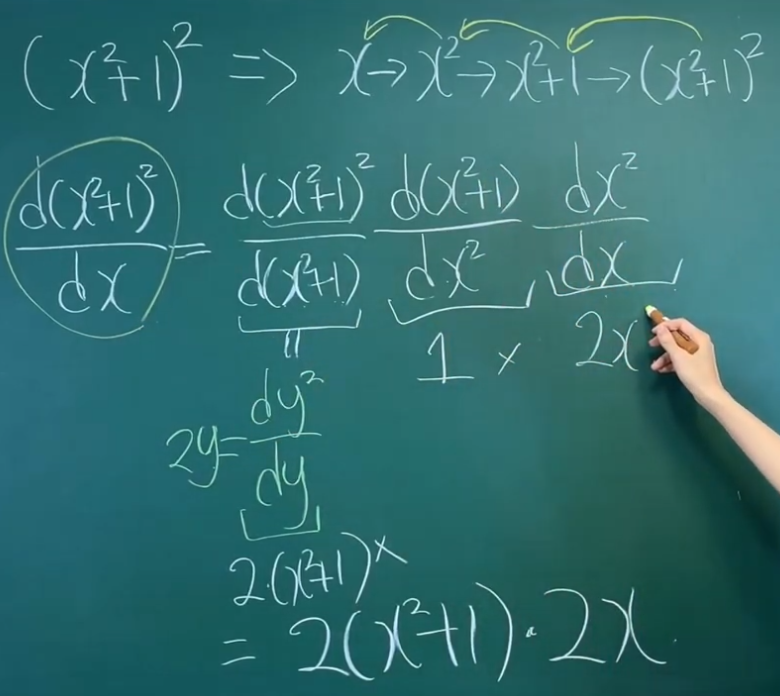 (x²+1)² => x→x²→x²+1→(x²+1)²
d(x²+1)²/dx = d(x²+1)²/d(x²+1) d(x²+1)/dx² dx²/dx
= 1 × 2x
2y = dy²/dy
2·(x²+1) ×
= 2(x²+1)·2x